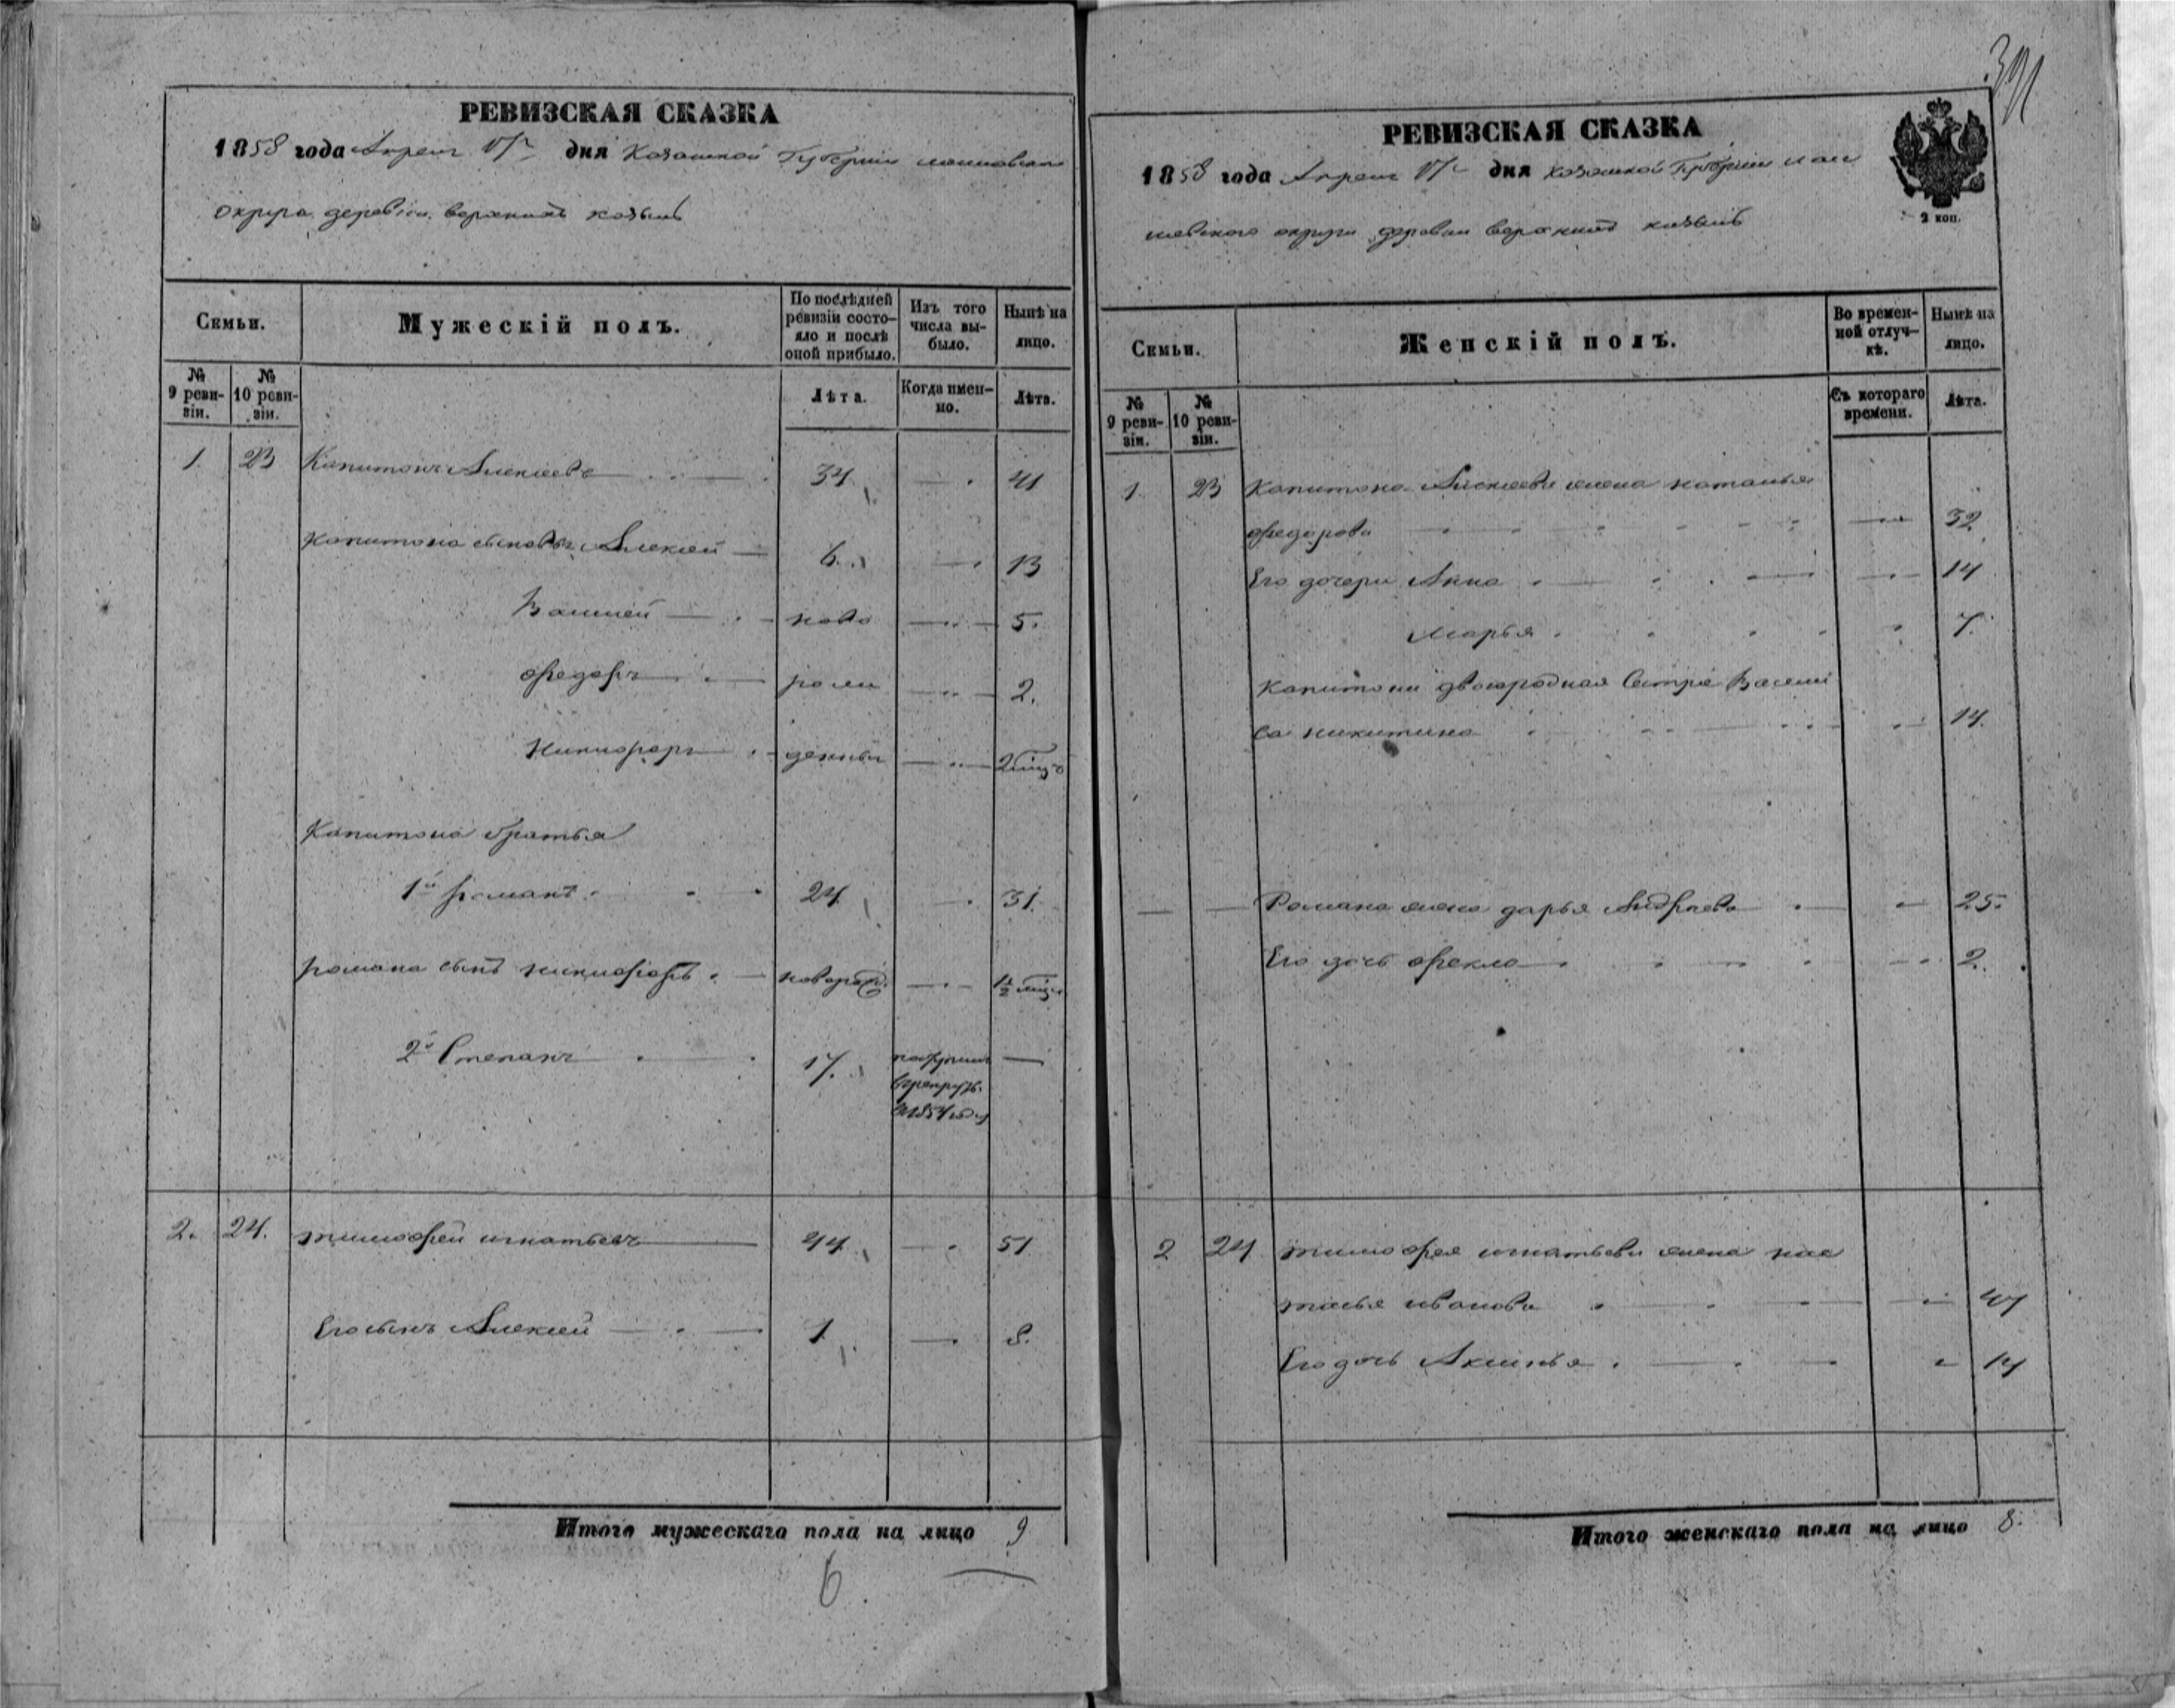 391
РЕВИЗСКАЯ СКАЗКА
1858 года Апреля дня Казанской Губернии
округа деревни верхнихъ
Семьи.
Мужескій полъ.
По послѣдней ревизіи состояло и послѣ оной прибыло.
Изъ того числа выбыло.
Нынѣ на лицо.
№ 9 ревизіи.
№ 10 ревизіи.
Лѣта.
Когда именно.
Лѣта.
1. 23 Капитонъ Алексеевъ 34 41
Капитона сыновья Алексей 6. 13
Василей ново 5.
Федоръ рож 2.
Никифоръ денные 2 мцъ
Капитона братья
1й Романъ 24 31.
Романа сынъ Никифоръ новорожд. 1/2 мцъ
2й Степанъ 17. поступилъ
в рекруты
в 1854 году
2. 24. тимофей игнатьевъ 44 51
Его сынъ Алексей 1 8.
Итого мужескаго пола на лицо 9
6.
РЕВИЗСКАЯ СКАЗКА
1858 года Апреля дня Казанской Губернии
округа деревни верхнихъ
2 коп.
Семьи.
Женскій полъ.
Во временной отлучкѣ.
Нынѣ на лицо.
№ 9 ревизіи.
№ 10 ревизіи.
Съ котораго времени.
Лѣта.
1. 23 Капитона Алексеева жена наталья
федорова 32
Его дочери Анна 14
Марья 7.
Капитона двоюродная Сестра Васели
са никитина 14.
Романа жена дарья Андреева 25.
Его дочь фекла 2.
2 24 тимофея игнатьева жена нас
тасья иванова 47
Его дочь Аксинья 14
Итого женскаго пола на лицо 8.